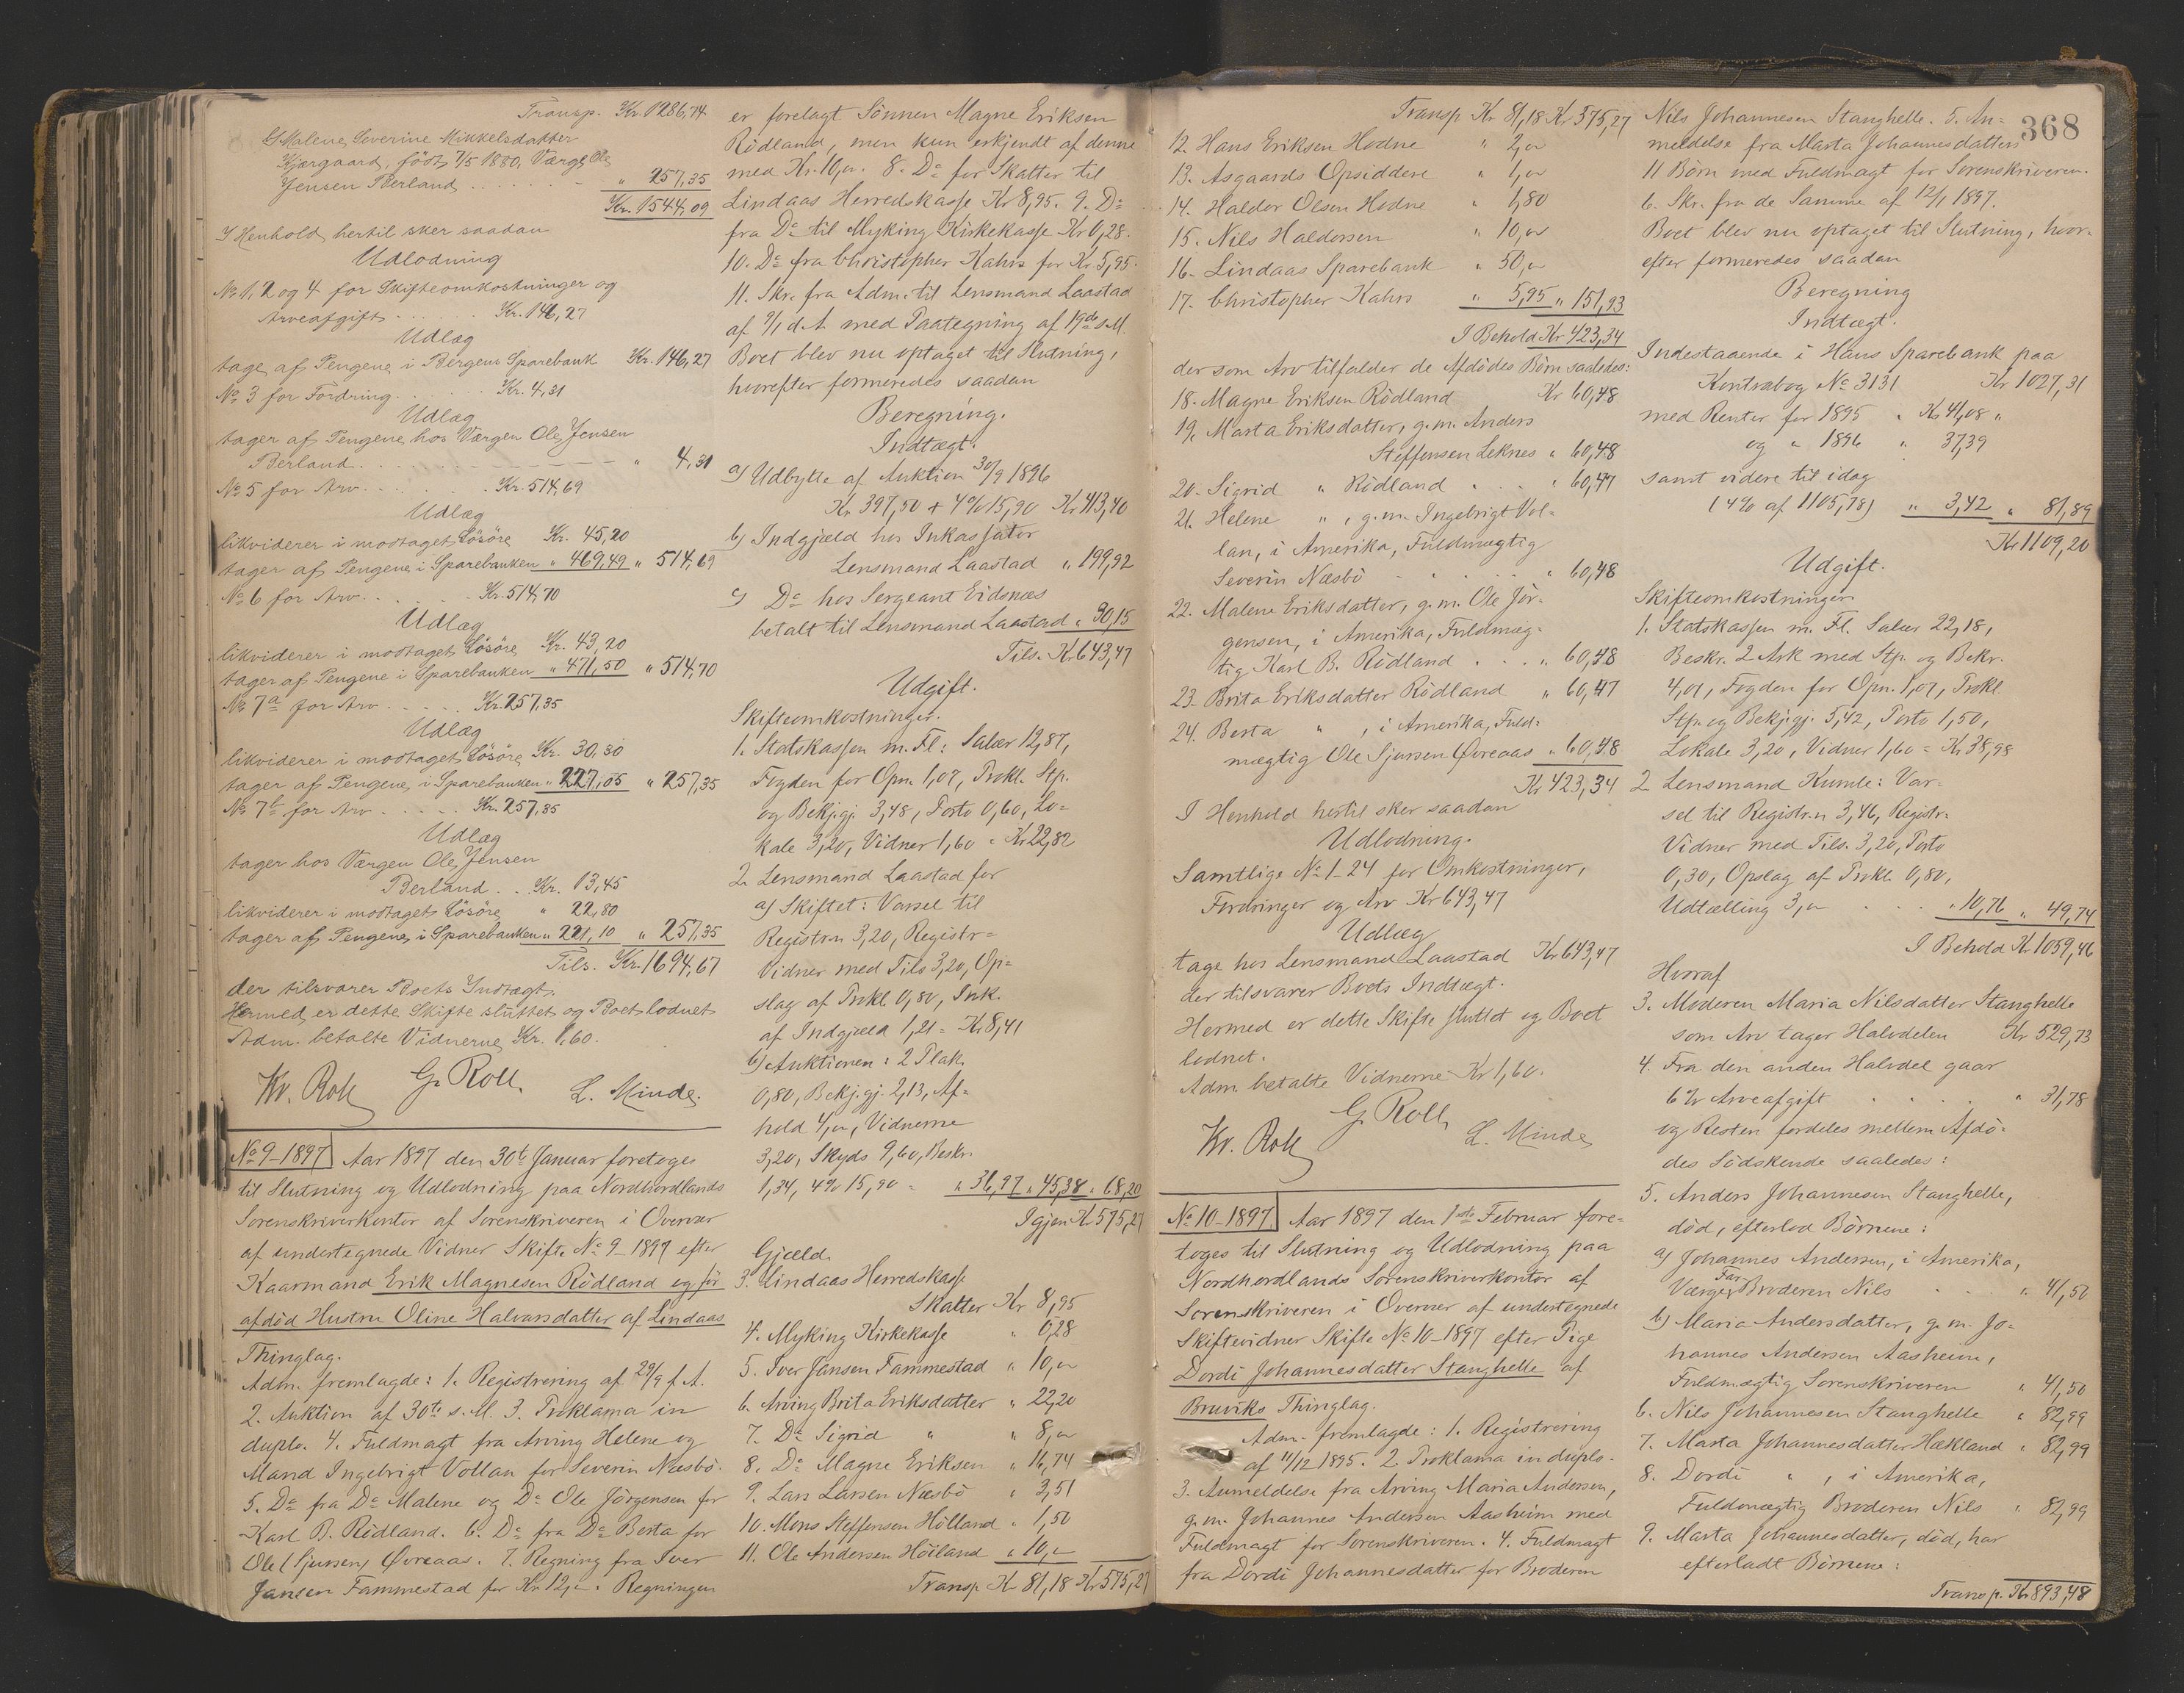 Transp. Kr. 1286,74
Malene Severine Mikkelsdatter
Kjærgaard, født 7/5 1880, Værge Ole
Jensen Berland . . . . . . " 257,35
Kr. 1544,09
I Henhold hertil sker saadan
Udlodning
No 1, 2 og 4 for Skifteomkostninger og
Arveafgift . . . . . Kr. 146,27
Udlæg
tage af Pengene i Bergens Sparebank Kr. 146,27
No 3 for Fordring . . . . Kr. 4,31
Udlæg
tager af Pengene hos Værgen Ole Jensen
Berland . . . . . . . " 4,31
No 5 for Arv . . . . . Kr. 514,69
Udlæg
likviderer i modtaget Løsøre Kr. 45,20
tager af Pengene i Sparebanken " 469,49 " 514,69
No 6 for Arv . . . . . Kr. 514,70
Udlæg
likviderer i modtaget Løsøre Kr. 43,20
tager af Pengene i Sparebanken " 471,50 " 514,70
No 7a for Arv . . . . . Kr. 257,35
Udlæg
likviderer i modtaget Løsøre Kr. 30,30
tager af Pengene i Sparebanken " 227,05 " 257,35
No 7b for Arv . . . . Kr. 257,35
Udlæg
tager hos Værgen Ole Jensen
Berland . . Kr. 13,45
likviderer i modtaget Løsøre " 22,80
tager af Pengene i Sparebanken " 221,10 " 257,35
Tils. Kr. 1694,67
der tilsvarer Boets Indtægt.
Hermed er dette Skifte sluttet og Boet lodnet
Adm. betalte Vidnerne Kr. 1,60.
Kr. Roll G. Roll. L. Minde.
No 9-1897 Aar 1897 den 30te Januar foretoges
til Slutning og Udlodning paa Nordhordlands
Sorenskriverkontor af Sorenskriveren i Overvær
af undertegnede Vidner Skifte No 9-1897 efter
Kaarmand Erik Magnesen Rödland og för
afdöd Hustru Oline Halvorsdatter af Lindaas
Thinglag.
Adm. fremlagde: 1. Registrering af 29/9 f. A.
2. Auktion af 30te s. M. 3. Proklama in
duplo. 4. Fuldmagt fra Arving Helene og
Mand Ingebrigt Vollan for Severin Næsbö.
5. Do fra Do Malene og Do Ole Jörgensen for
Karl B. Rödland. 6. Do fra Do Berta for
Ole Sjursen Øvreaas. 7. Regning fra Iver
Jansen Fammestad for Kr 12,". Regningen
er forelagt Sönnen Magne Eriksen
Rödland, men kun erkjendt af denne
med Kr. 10,". 8. Do for Skatter til
Lindaas Herredskasse Kr 8,95. 9. Do
fra Do til Myking Kirkekasse Kr 0,28.
10. Do fra Christopher Kahrs for Kr 5,95.
11. Skr. fra Adm. til Lensmand Laastad
af 9/1 d. A. med Paategning af 19de s. M.
Boet blev nu optaget til Slutning,
hvorefter formeredes saadan
Beregning.
Indtægt.
a) Udbytte af Auktion 30/9 1896
Kr 397,50 + 4% 15,90 Kr 413,40
b) Indgjæld hos Inkassator
Lensmand Laastad " 199,92
c) Do hos Sergeant Eidsnæs
betalt til Lensmand Laastad " 30,15
Tils. Kr 643,47
Udgift.
Skifteomkostninger.
1. Statskassen m. Fl: Salær 12,87,
Fogden for Opn. 1,07, Prokl. Stp.
og Bekj.gj. 3,48, Porto 0,60, Lo=
kale 3,20, Vidner 1,60 = Kr 22,82
2. Lensmand Laastad for
a) Skiftet: Varsel til
Registr.n 3,20, Registr=
Vidner med Tils 3,20, Op=
slag af Prokl. 0,80, Ink.
af Indgjæld 1,21 = Kr 8,41
b) Auktionen: 2 Plak.
0,80, Bekj.gj. 2,13, Af=
hold 4,", Vidnerne
3,20, Skyds 9,60, Beskr.
1,34, 4% 15,90 = " 36,97 " 45,38 " 68,20
Igjen Kr 575,27
Gjæld.
3. Lindaas Herredskasse
Skatter Kr 8,95
4. Myking Kirkekasse " 0,28
5. Iver Jansen Fammestad " 10,"
6. Arving Brita Eriksdatter " 22,20
7. Do Sigrid " " 8,"
8. Do Magne Eriksen " 16,74
9. Lars Larsen Næsbö " 3,51
10. Mons Steffensen Hölland " 1,50
11. Ole Andersen Höiland " 10,"
Transp. Kr 81,18 Kr 575,27
Transp Kr 81,18 Kr 575,27
12. Hans Eriksen Hodne " 2,"
13. Asgaards Opsiddere " 1,"
14. Haldor Olsen Hodne " 1,80
15. Nils Haldorsen " 10,"
16. Lindaas Sparebank " 50,"
17. Christopher Kahrs " 5,95 " 151,93
I Behold Kr 423,34
der som Arv tilfalder de Afdödes Börn saaledes:
18. Magne Eriksen Rödland Kr 60,48
19. Marta Eriksdatter, g. m. Anders
Steffensen Leknes " 60,48
20. Sigrid " Rödland . . . " 60,47
21. Helene " , g. m. Ingebrigt Vol=
lan, i Amerika, Fuldmægtig
Severin Næsbö . . . . " 60,48
22. Malene Eriksdatter, g. m. Ole Jör=
gensen, i Amerika, Fuldmæg=
tig Karl B. Rödland . . . " 60,48
23. Brita Eriksdatter Rödland " 60,47
24. Berta " , i Amerika, Fuld=
mægtig Ole Sjursen Øvreaas " 60,48
Kr 423,34
I Henhold hertil sker saadan
Udlodning.
Samtlige No 1-24 for Omkostninger,
Fordringer og Arv Kr 643,47
Udlæg
tage hos Lensmand Laastad Kr 643,47
der tilsvarer Boets Indtægt.
Hermed er dette Skifte sluttet og Boet
lodnet.
Adm. betalte Vidnerne Kr 1,60.
Kr. Roll G. Roll L. Minde
No 10-1897 Aar 1897 den 1ste Februar fore=
toges til Slutning og Udlodning paa
Nordhordlands Sorenskriverkontor af
Sorenskriveren i Overvær af undertegnede
Skiftevidner Skifte No 10-1897 efter Pige
Dordi Johannesdatter Stanghelle af
Bruviks Thinglag.
Adm. fremlagde: 1. Registrering
af 11/12 1895. 2. Proklama in duplo.
3. Anmeldelse fra Arving Maria Andersen,
g. m. Johannes Andersen Aasheim med
Fuldmagt for Sorenskriveren. 4. Fuldmagt
fra Dordi Johannesdatter for Broderen
368
Nils Johannesen Stanghelle. 5. An=
meldelse fra Marta Johannesdatters
11 Börn med Fuldmagt for Sorenskriveren.
6. Skr. fra de Samme af 12/1 1897.
Boet blev nu optaget til Slutning, hvor=
efter formeredes saadan
Beregning
Indtægt.
Indestaaende i Haus Sparebank paa
Kontrabog No 3131 Kr 1027,31
med Renter for 1895 " Kr 41,08 "
og " 1896 " 37,39
samt videre til idag
(4% af 1105,78) " 3,42 " 81,89
Kr 1109,20
Udgift.
Skifteomkostninger.
1. Statskassen m. Fl. Salær 22,18,
Beskr. 2 Ark med Stp. og Bekr.
4,01, Fogden for Opn. 1,07, Prokl.
Stp. og Bekj.gj. 5,42, Porto 1,50,
Lokale 3,20, Vidner 1,60 = Kr 38,98
2. Lensmand Kumle: Var=
sel til Registr.n 3,46, Registr=
Vidner med Tils. 3,20, Porto
0,30, Opslag af Prokl. 0,80,
Udtælling 3,". . . . " 10,76 " 49,74
I Behold Kr 1059,46
Hvoraf
3. Moderen Maria Nilsdatter Stanghelle
som Arv tager Halvdelen Kr 529,73
4. Fra den anden Halvdel gaar
6% Arveafgift . . . . " 31,78
og Resten fordeles mellem Afdö=
des Södskende saaledes:
5. Anders Johannesen Stanghelle,
död, efterlod Börnene:
a) Johannes Andersen, i Amerika,
Værge Far Broderen Nils . . . " 41,50
b) Maria Andersdatter, g. m. Jo=
hannes Andersen Aasheim,
Fuldmægtig Sorenskriveren " 41,50
6. Nils Johannesen Stanghelle " 82,99
7. Marta Johannesdatter Hækland " 82,99
8. Dordi " , i Amerika,
Fuldmægtig Broderen Nils " 82,99
9. Marta Johannesdatter, död, har
efterladt Börnene:
Transp. Kr 893,48